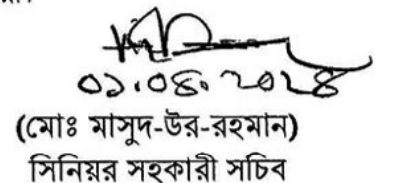 ০১.০৪.২০২৪
(মোঃ মাসুদ-উর-রহমান)
সিনিয়র সহকারী সচিব